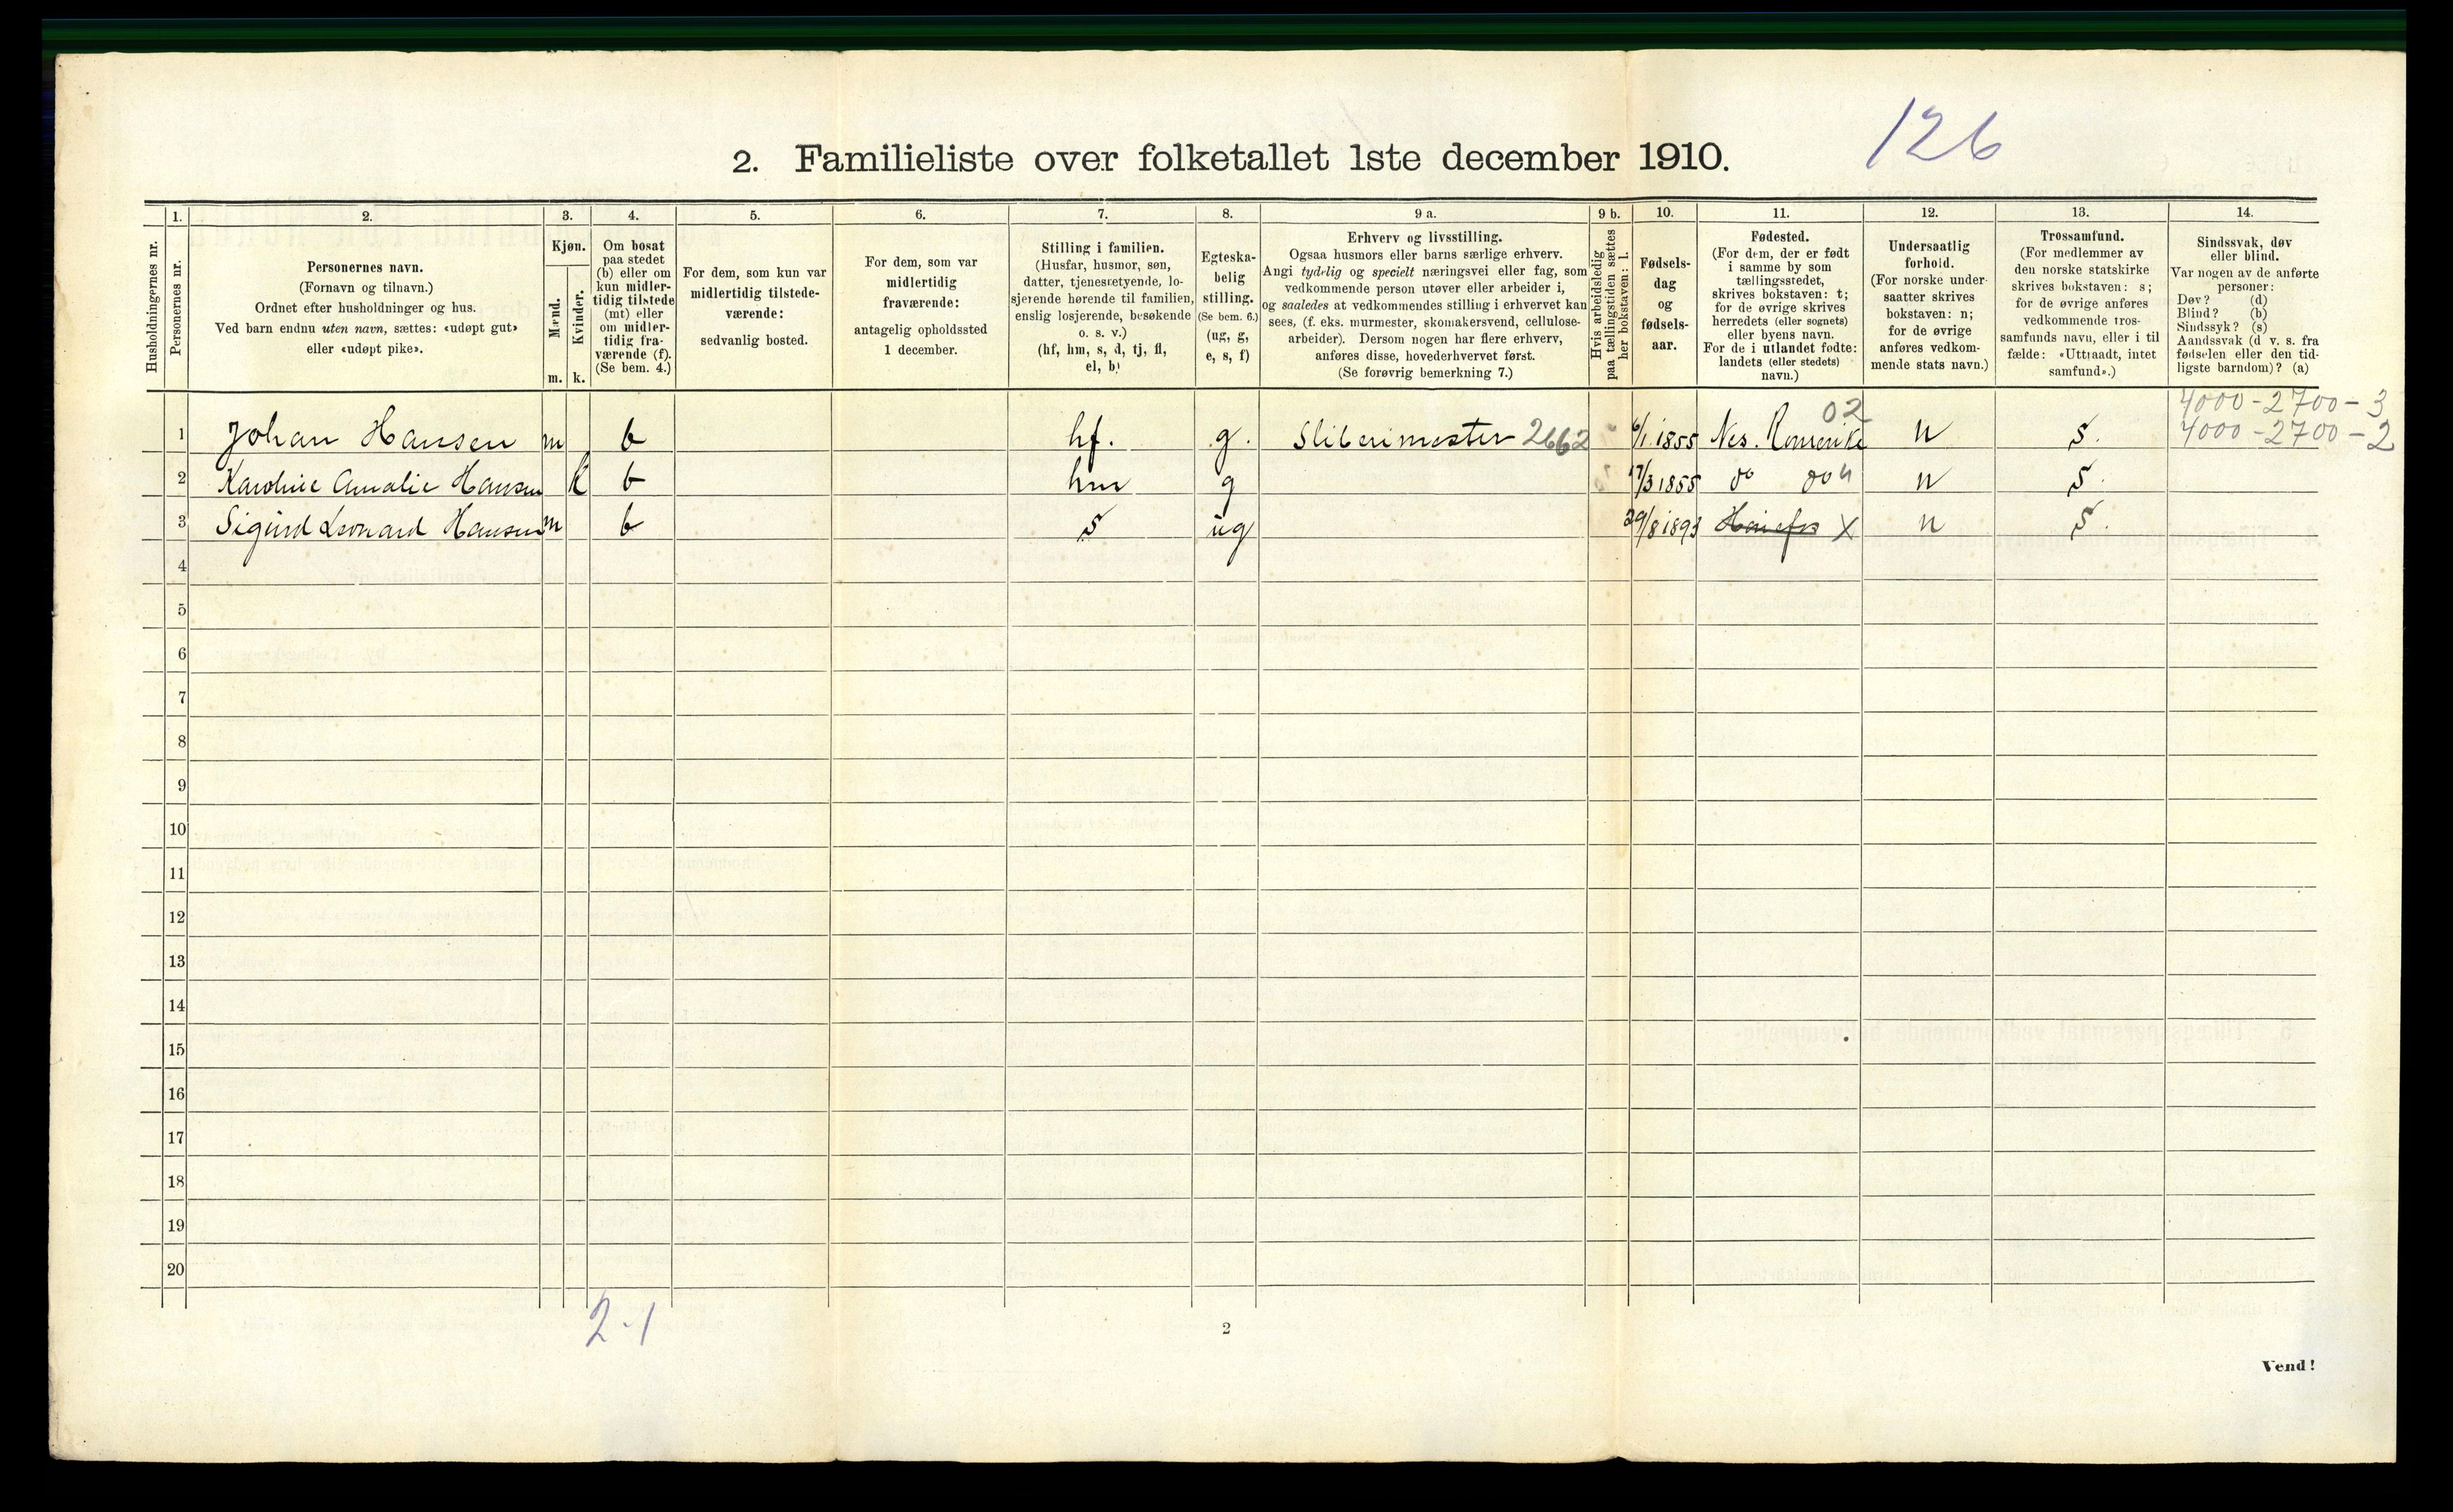 126
2. Familieliste over folketallet 1ste december 1910.
1. 2. 3. 4. 5. 6. 7. 8. 9 a. 9 b. 10. 11. 12. 13. 14.
Husholdningernes nr.
Personernes nr.
Personernes navn.
(Fornavn og tilnavn.)
Ordnet efter husholdninger og hus.
Ved barn endnu uten navn, sættes: «udøpt gut»
eller «udøpt pike».
Kjøn.
Mænd.
Kvinder.
m. k.
Om bosat
paa stedet
(b) eller om
kun midler-
tidig tilstede
(mt) eller
om midler-
tidig fra-
værende (f).
(Se bem. 4.)
For dem, som kun var
midlertidig tilstede-
værende:
sedvanlig bosted.
For dem, som var
midlertidig
fraværende:
antagelig opholdssted
1 december.
Stilling i familien.
(Husfar, husmor, søn,
datter, tjenestetyende, lo-
sjerende hørende til familien,
enslig losjerende, besøkende
o. s. v.)
(hf, hm, s, d, tj, fl,
el, b)
Egteska-
belig
stilling.
(Se bem. 6.)
(ug, g,
e, s, f)
Erhverv og livsstilling.
Ogsaa husmors eller barns særlige erhverv.
Angi tydelig og specielt næringsvei eller fag, som
vedkommende person utøver eller arbeider i,
og saaledes at vedkommendes stilling i erhvervet kan
sees, (f. eks. murmester, skomakersvend, cellulose-
arbeider). Dersom nogen har flere erhverv,
anføres disse, hovederhvervet først.
(Se forøvrig bemerkning 7.)
Hvis arbeidsledig
paa tællingstiden sættes
her bokstaven: l.
Fødsels-
dag
og
fødsels-
aar.
Fødested.
(For dem, der er født
i samme by som
tællingsstedet,
skrives bokstaven: t;
for de øvrige skrives
herredets (eller sognets)
eller byens navn.
For de i utlandet fødte:
landets (eller stedets)
navn.)
Undersaatlig
forhold.
(For norske under-
saatter skrives
bokstaven: n;
for de øvrige
anføres vedkom-
mende stats navn.)
Trossamfund.
(For medlemmer av
den norske statskirke
skrives bokstaven: s;
for de øvrige anføres
vedkommende tros-
samfunds navn, eller i til
fælde: «Uttraadt, intet
samfund».)
Sindssvak, døv
eller blind.
Var nogen av de anførte
personer:
Døv? (d)
Blind? (b)
Sindssyk? (s)
Aandssvak (d. v. s. fra
fødselen eller den tid-
ligste barndom)? (a)
02 4000-2700-3
1 Johan Hansen m b hf. g. Sliberimester 2662 6/1 1855 Nes. Romerike n s. 4000-2700-2
2 Karoline Amalie Hansen k b hm g 17/3 1855 do do n s.
3 Sigurd Leonard Hansen m b s ug 29/8 1893 X n s.
4
5
6
7
8
9
10
11
12
13
14
15
16
17
18
19
20
2-1
2
Vend!